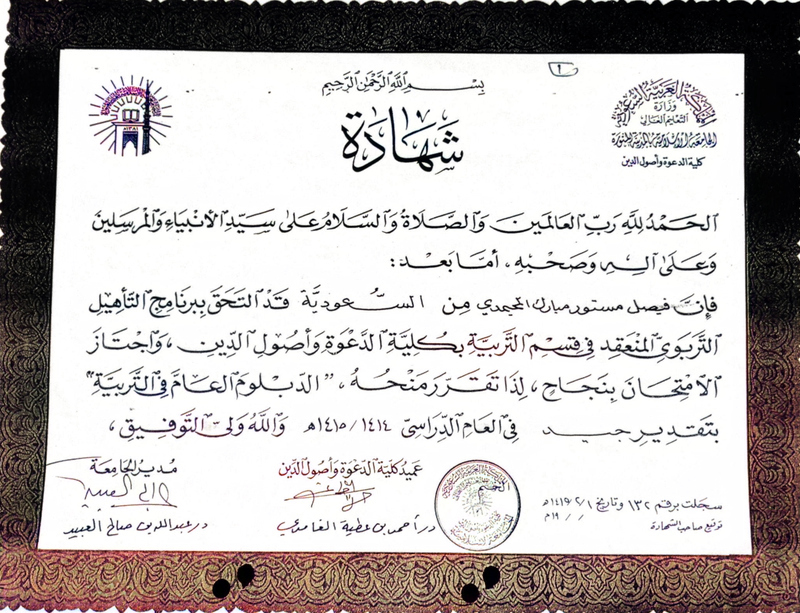 ١
بسم الله الرحمن الرحيم
المملكة العربية السعودية
وزارة
التعليم العالي
الجامعة الإسلامية بالمدينة المنورة
كلية الدعوة وأصول الدين
شهادة
الحمد لله رب العالمين والصلاة والسلام على سيد الأنبياء والمرسلين
وعلى آله وصحبه، أما بعد:
فإن فيصل مستور مبارك من السعودية قد التحق ببرنامج التأهيل
التربوي المنعقد في قسم التربية بكلية الدعوة وأصول الدين، واجتاز
الامتحان بنجاح، لذا تقرر منحه، "الدبلوم العام في التربية"
بتقدير جيد في العام الدراسي ١٤١٤/١٤١٥هـ والله ولي التوفيق،
سجلت برقم ١٣٢ وتاريخ ١٤١٦/٢/١هـ
١٩ / / م
توقيع صاحب الشهادة
الختم
عميد كلية الدعوة وأصول الدين
د/أحمد بن عطية الغامدي
مدير الجامعة
د/عبدالله بن صالح العبيد